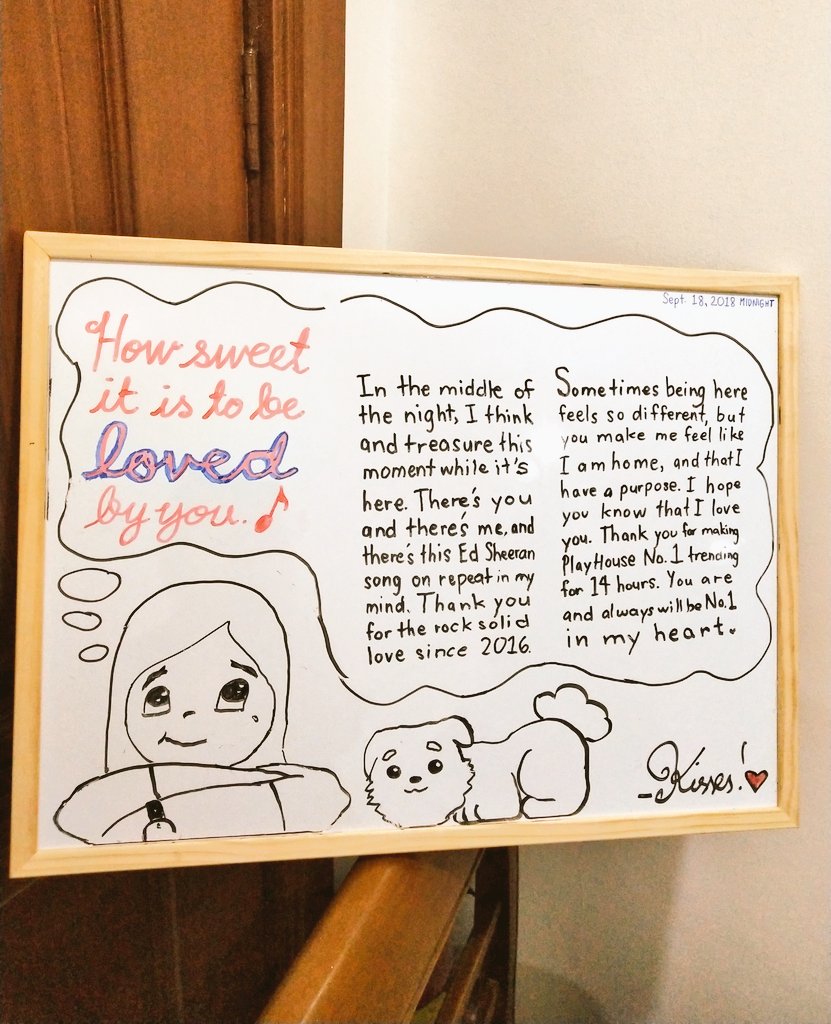 Sept. 18, 2018 MIDNIGHT
How sweet
it is to be
loved
by you.
In the middle of
the night, I think
and treasure this
moment while it's
here. There's you
and there's me, and
there's this Ed Sheeran
song on repeat in my
mind. Thank you
for the rock solid
love since 2016.
Sometimes being here
feels so different, but
you make me feel like
I am home, and that I
have a purpose. I hope
you know that I love
you. Thank you for making
PlayHouse No.1 trending
for 14 hours. You are
and always will be No.1
in my heart.
-Kisses!